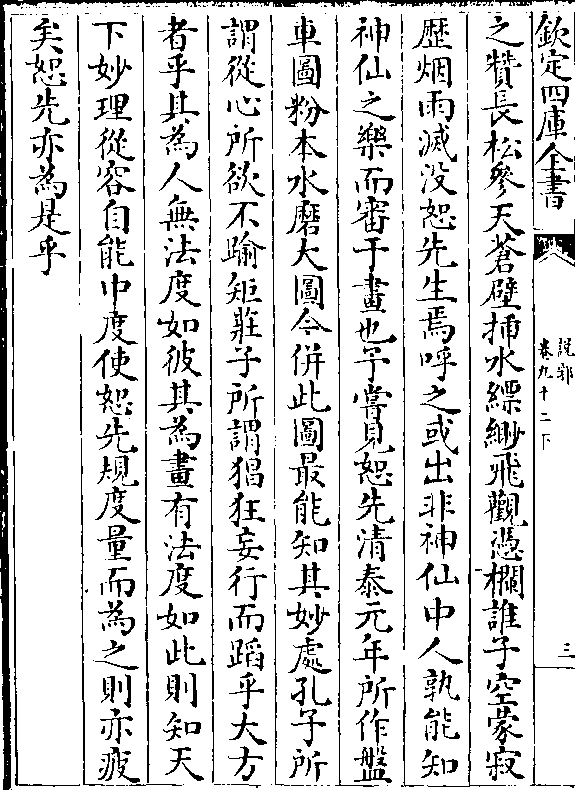 欽定四庫全書
說郛
卷九十二下
三
之贊長松參天蒼壁揷水縹緲飛觀憑欄誰子空蒙寂
歴烟雨滅没恕先生焉呼之或出非神仙中人孰能知
神仙之樂而審于畫也予嘗見恕先清泰元年所作盤
車圖粉本水磨大圖今併此圖最能知其妙處孔子所
謂從心所欲不踰矩莊子所謂猖狂妄行而蹈乎大方
者乎其為人無法度如彼其為畫有法度如此則知天
下妙理從容自能中度使恕先規度量而為之則亦疲
矣恕先亦為是乎